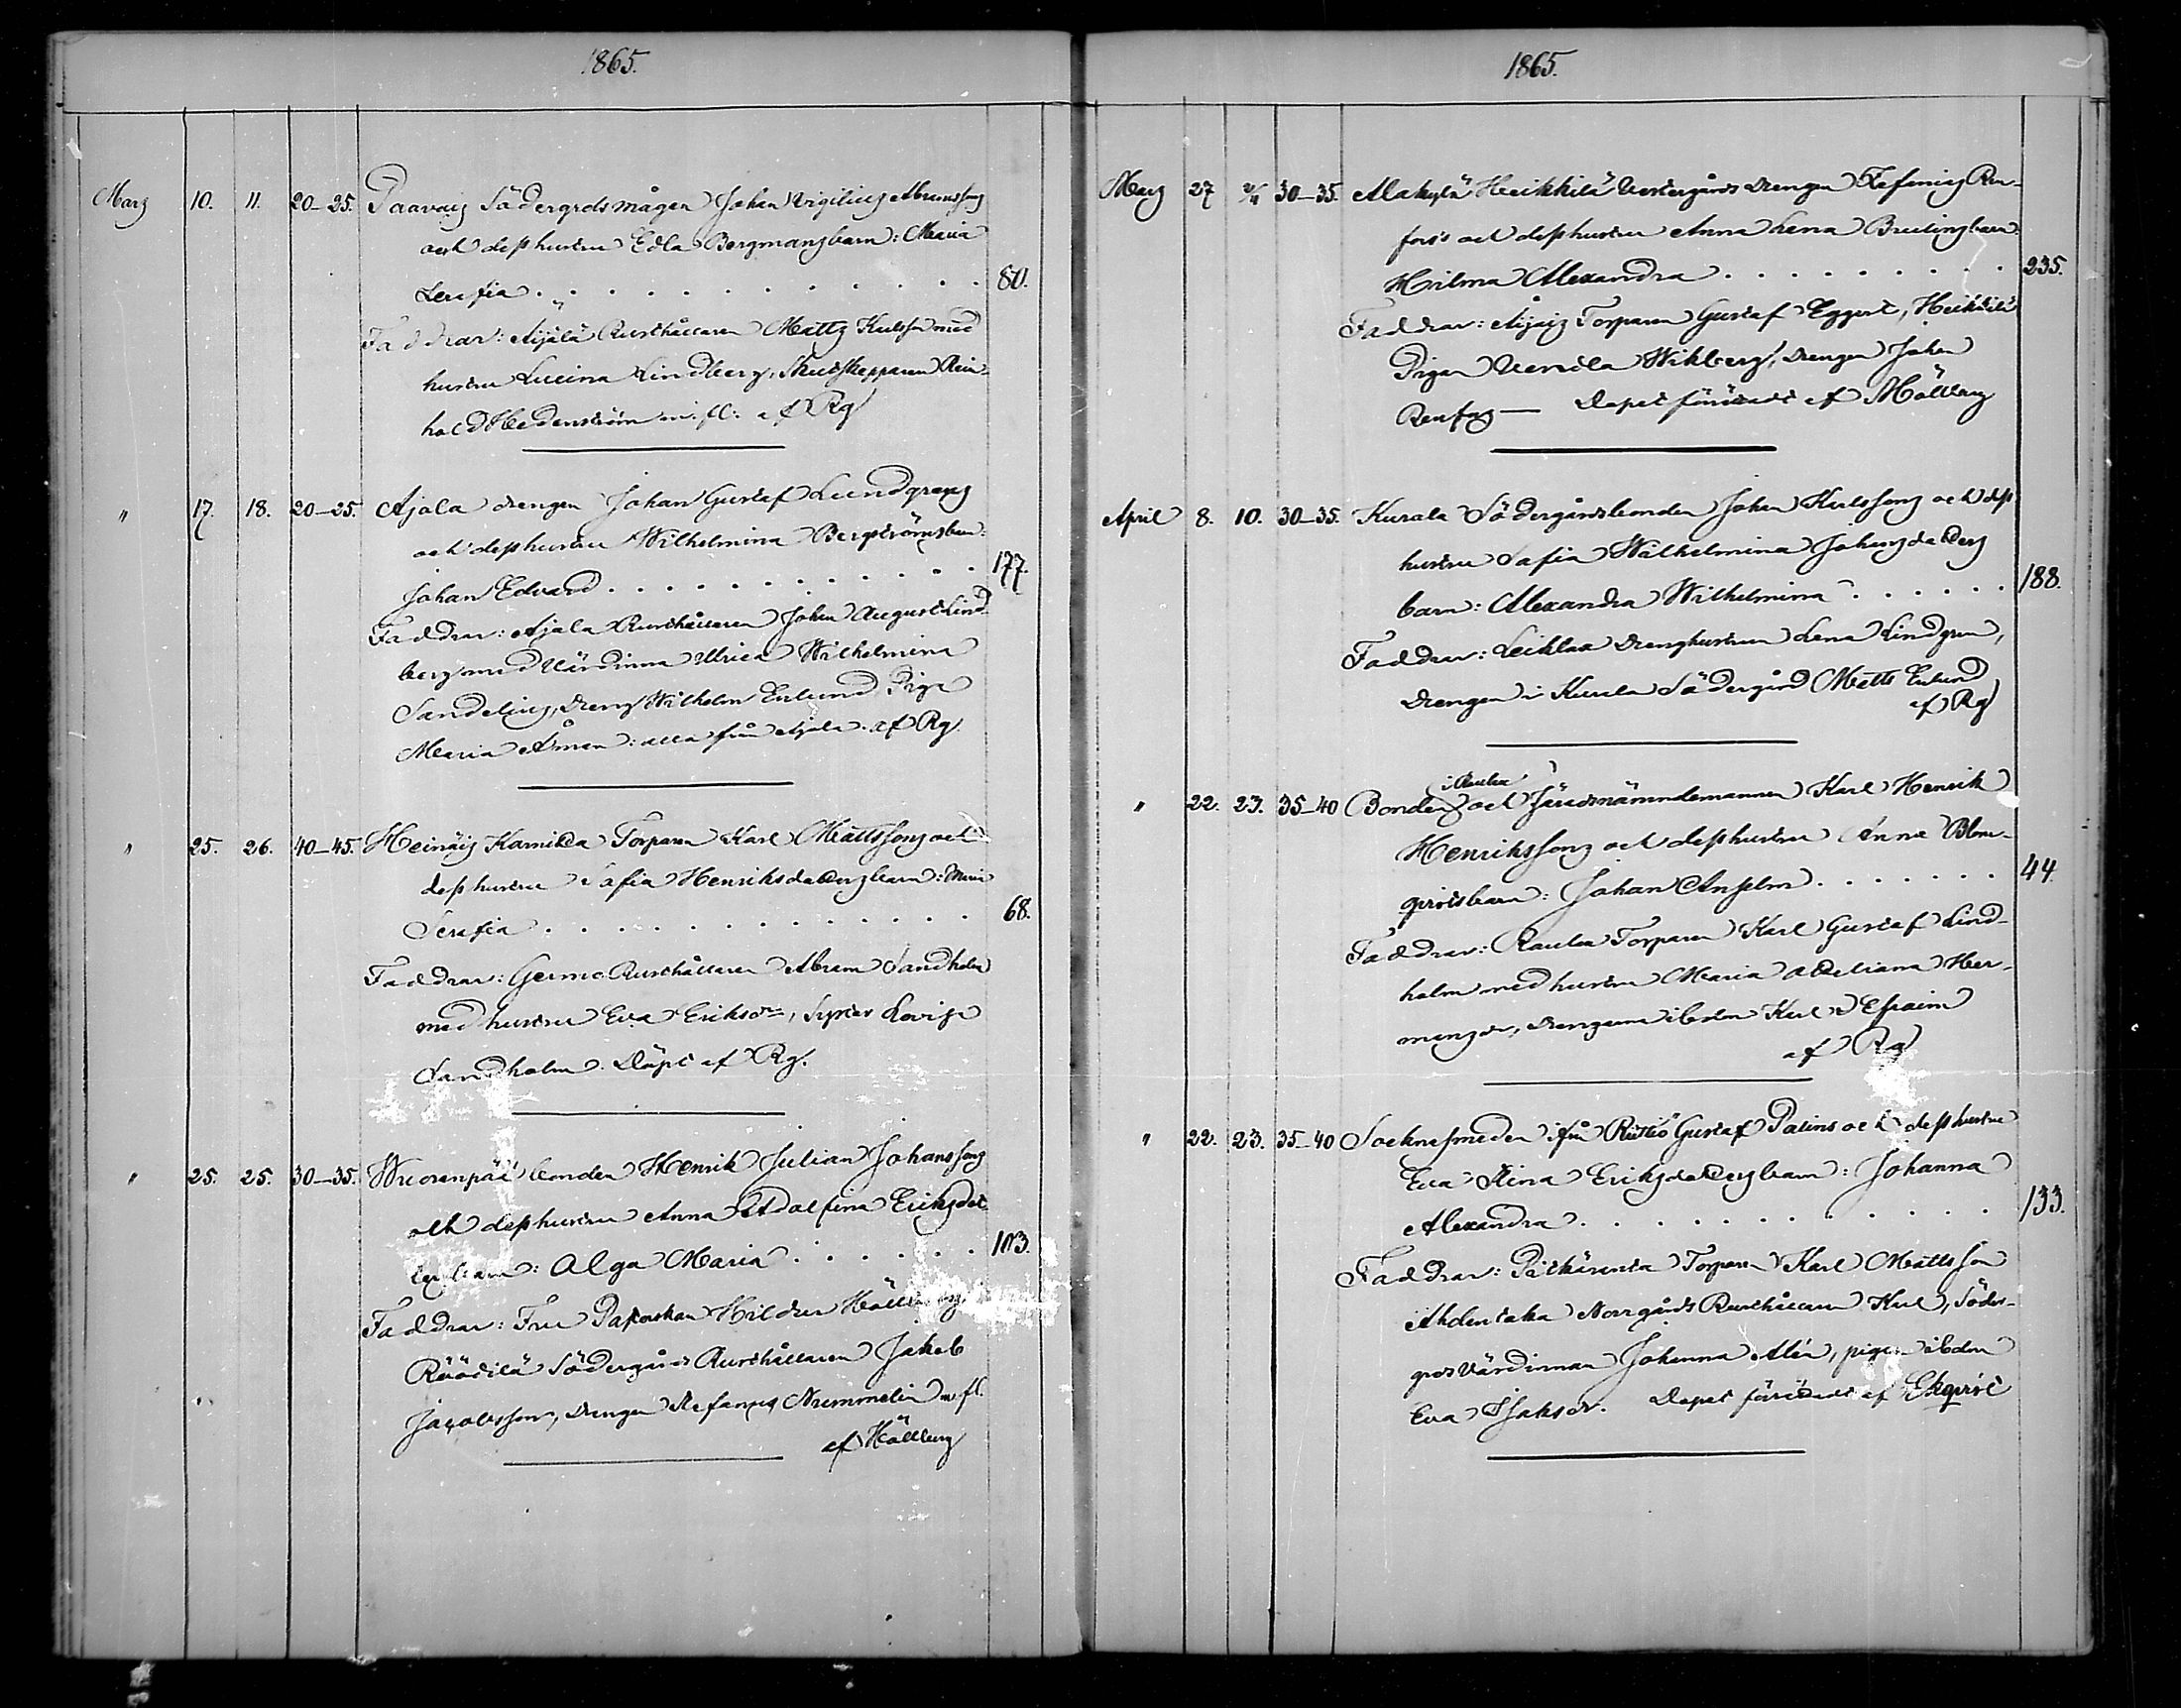 1865.
Marz 10. 11. 20-25. Paavaig Södergrds mågen Johan Virgilius Abramssons
och dess hustru Edla Bergmans barn: Maria
Serafia . . . . . . . . . . . 80.
Faddrar: Äijälä Rusthållaren Matts Karlsson med
hustru Lucina Lindberg, Skutskepparen Rein-
hold Hedenström m. fl. af Rg
" 17. 18. 20-25. Ajala drengen Johan Gustaf Lundgrens
och dess hustru Wilhelmina Bergströms barn:
Johan Edvard . . . . . . . . . . 177.
Faddrar: Ajala Rusthållaren Johan August Lind-
berg med Värdinna Ulrica Wilhelmina
Sandelius, dreng Wilhelm Enlund Piga
Maria Åman: alla från Ajala. af Rg.
" 25. 26. 40-45. Heinäis Kamilda Torparen Karl Mattssons och
dess hustru Sofia Henriksdotters barn: Maria
Serafia . . . . . . . . . . . 68.
Faddrar: Germo Rusthållaren Abram Sandholm
med hustru Eva Eriksdr, Syster Lovisa
Sandholm. Döpt af Rg.
" 25. 25. 30-35. Wuorenpää bonden Henrik Julian Johanssons
och dess hustru Anna Adolfina Eriksdot-
ters barn: Olga Maria . . . . . . 103.
Faddrar: Fru Pastorskan Hildur Hällberg
Rüödilä Södergårds Rusthållaren Jakob
Jacobsson, drengen Stefanus Nummelin m. fl.
af Hällberg
1865.
Marz 27 2/4 30-35. Alakylä Heikkilä Vestergårds drengen Stefanus Ren-
fors's och dess hustru Anna Lena Brulins barn:
Hilma Alexandra . . . . . . . . . 235.
Faddrar: Äijäis Torparen Gustaf Eggert, Heikkilä
Pigan Vendla Wikberg, drengen Johan
Renfors — Dopet förrättadt af Hällberg
April 8. 10. 30-35. Kurala Södergårdsbonden Johan Karlssons och dess
hustru Sofia Wilhelmina Johansdotters
barn: Alexandra Wilhelmina . . . . . . 188.
Faddrar: Leiklaa drenghustrun Lena Lindgren,
drengen i Kurala Södergård Matts Enlund
af Rg
i Raulua
" 22. 23. 35-40 Bonden och Häradsnämndemannen Karl Henrik
Henrikssons och dess hustru Anna Blom-
qvists barn: Johan Anselm . . . . . . . 44.
Faddrar: Raulua Torparen Karl Gustaf Lind-
holm med hustru Maria Adeliana Her-
mansdr, drengarne ibdm Karl Efraim
af Rg
" 22. 23. 35-40 Socknesmeden ifrån Ruttio Gustaf Palins och dess hustru
Eva Stina Eriksdotters barn: Johanna
Alexandra . . . . . . . . . . . 133.
Faddrar: Pitkäranta Torparen Karl Mattsson
Ahdentaka Norrgårds Rusthållaren Karl, Söder-
grds Värdinnan Johanna Alén, pigan ibdm
Eva Isaksdr. Dopet förrättadt af Ekqvist